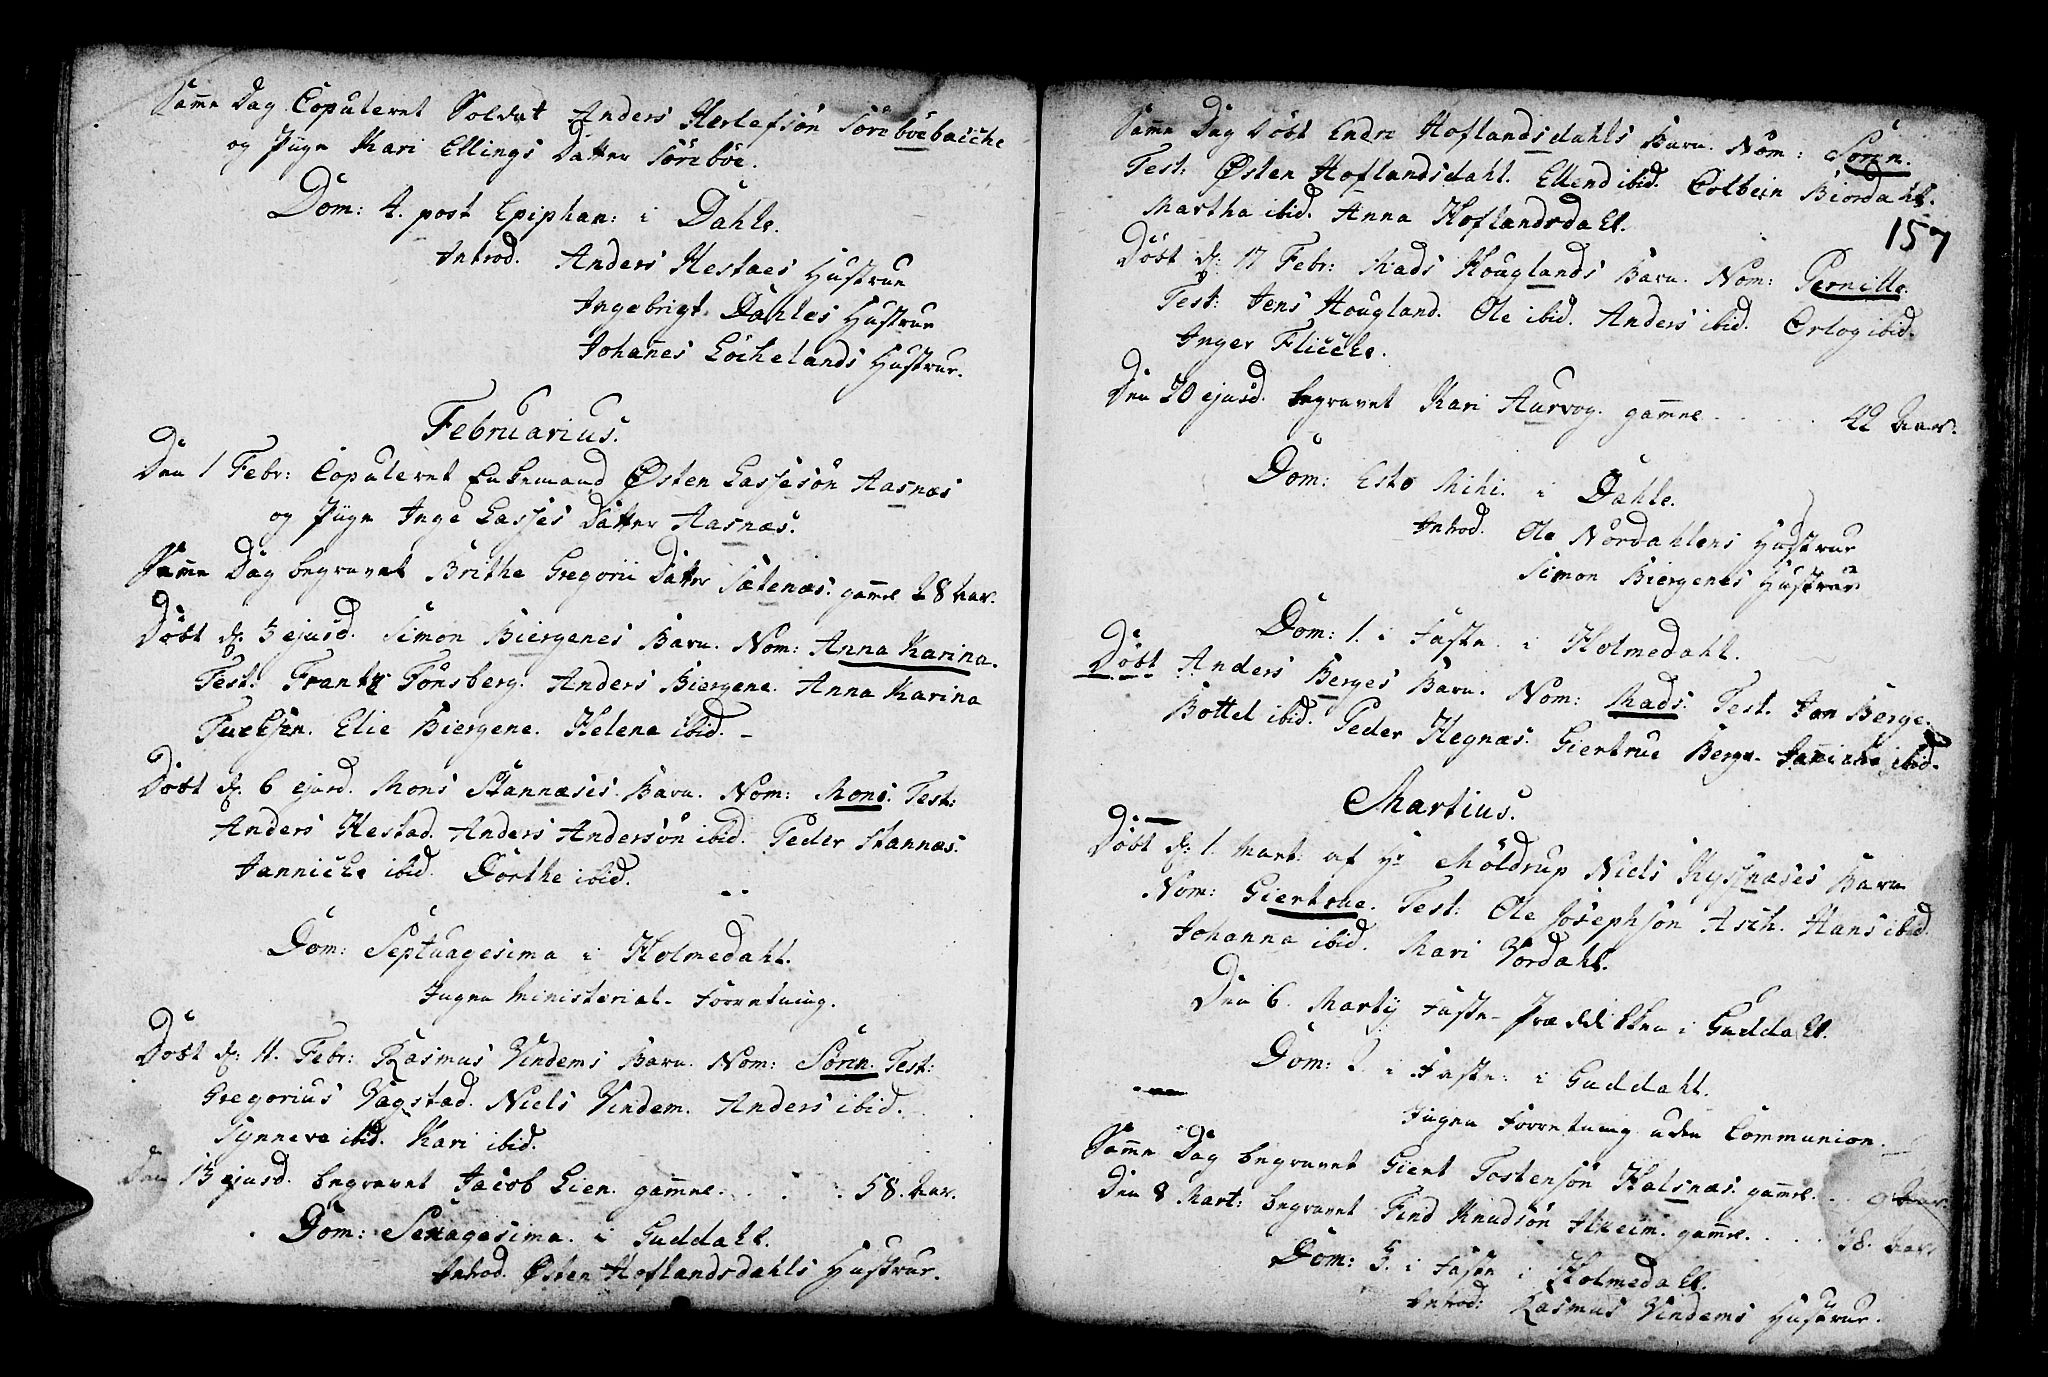 Samme Dag Copuleret Soldat Anders Herlefsøn Söreböebacche
og Pige Kari Ellings Datter Söreböe.
Dom: 4. post Epiphan: i Dahle.
Introd. Anders Hestaes Hustrue
Ingebrigt Dahles Hustrue
Johannes Löchelands Hustrue.
Februarius.
Den 1 Febr: Copuleret Enkemand Østen Lassesøn Aasnæs
og Pige Inge Lasses Datter Aasnæs.
Samme Dag begravet Brithe Gregorii Datter Sætenæs. gammel 28 Aar.
Döbt d. 3 ejusd. Simon Biergenes Barn. Nom: Anna Karina.
Test: Frantz Tönsberg. Anders Biergene. Anna Karina
Elie Biergene. Helena ibid.
Döbt d. 6 ejusd. Mons Stannæses Barn. Nom: Mons. Test:
Anders Hestad. Anders Andersøn ibid. Peder Stannæs.
Jannicke ibid. Dorthe ibid.
Dom: Septuagesima i Holmedahl.
Ingen Ministerial-Forretning.
Döbt d. 11. Febr: Rasmus Vindems Barn. Nom: Sören. Test:
Gregorius Vagstad. Niels Vindem. Anders ibid.
Synneve ibid. Kari ibid.
Den 13 ejusd. begravet Jacob Lien. gammel . . . 58. Aar.
Dom: Sexagesima. i Guddahl.
Introd. Østen Hoflandsdahls Hustrue.
Samme Dag Döbt Endre Hoflandsdahls Barn. Nom: Sören.
Test: Østen Hoflandsdahl. Ellend ibid. Colbein Biordahl.
Martha ibid. Anna Hoflandsdahl.
157
Döbt d. 17 Febr: Mads Houglands Barn. Nom: Pernille.
Test: Jens Hougland. Ole ibid. Anders ibid. Ortog ibid.
Inger Flicche.
Den 20 ejusd. begravet Kari Aurvog. gammel . . . . 42 Aar.
Dom: Esto Mihi. i Dahle.
Introd. Ole Nordahlens Hustrue
Simon Biergenes Hustrue
Dom: 1. i Faste. i Holmedahl.
Döbt Anders Berges Barn. Nom: Mads. Test. Jan Berge.
Bottel ibid. Peder Hegnæs. Giertrue Berge. Jannicke ibid.
Martius.
Döbt d. 1. Mart: af Hr Möldrup Niels Kyssnæses Barn
Nom: Giertrue. Test: Ole Josephsøn Asch. Hans ibid.
Johanna ibid. Mari Vordahl.
Den 6. Martij Faste-Prædicken i Guddahl.
Dom: 2. i Faste. i Guddahl.
Ingen Forretning uden Communion.
Samme Dag begravet Giert Tostensøn Halsnæs. gammel . . . 9 Aar.
Den 8 Mart: begravet Find Knudsøn gammel . . . . 78. Aar
Dom: 3. i Fasten i Holmedahl.
Introd: Rasmus Vindems Hustrue.